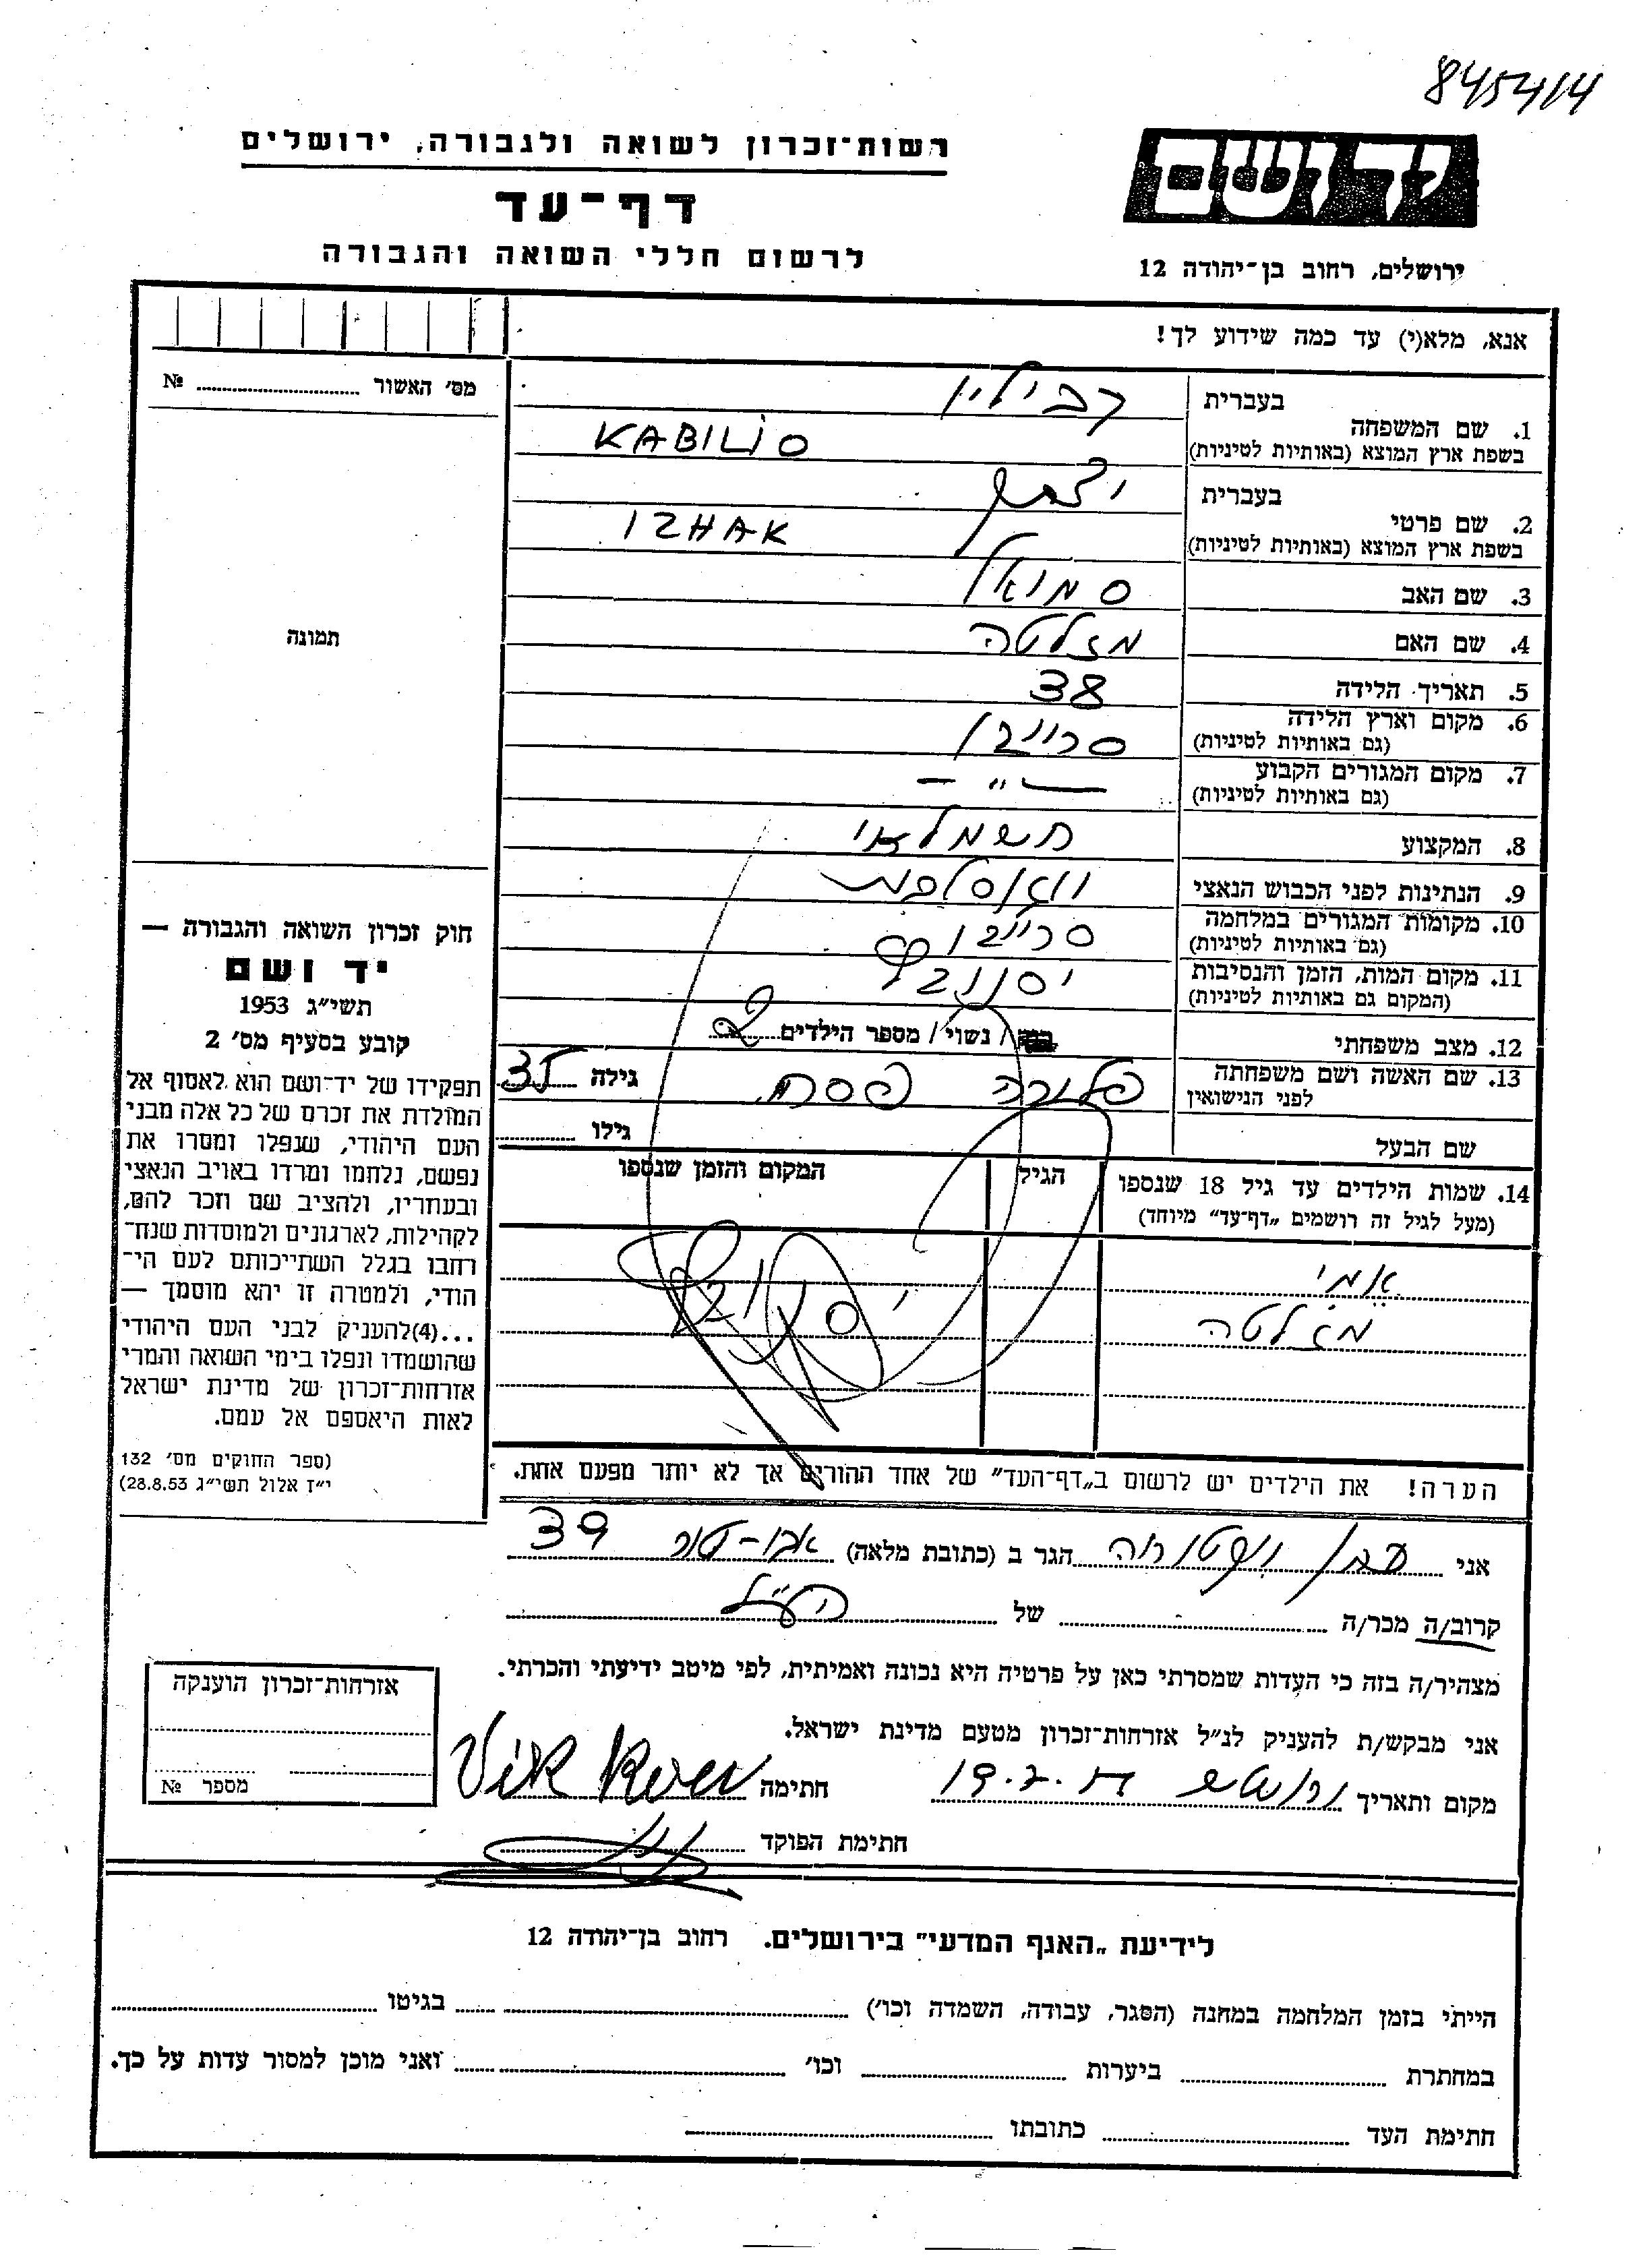 845414
רשות־זכרון לשואה ולגבורה, ירושלים
יד ושם
דף־עד
לרשום חללי השואה והגבורה
ירושלים, רחוב בן־יהודה 12
אנא, מלא(י) עד כמה שידוע לך!
מס׳ האשור № 
תמונה
1. שם המשפחה
בעברית קביליו
בשפת ארץ המוצא (באותיות לטיניות) KABILIO
2. שם פרטי
בעברית יצחק
בשפת ארץ המוצא (באותיות לטיניות) IZHAK
3. שם האב סמואל
4. שם האם מזלטה
5. תאריך הלידה 38
6. מקום וארץ הלידה סרייבו
(גם באותיות לטיניות)
7. מקום המגורים הקבוע — " —
(גם באותיות לטיניות)
8. המקצוע חשמלאי
9. הנתינות לפני הכבוש הנאצי
10. מקומות המגורים במלחמה סרייבו
(גם באותיות לטיניות)
11. מקום המות, הזמן והנסיבות יסנובץ
(המקום גם באותיות לטיניות)
12. מצב משפחתי / נשוי / מספר הילדים 2
13. שם האשה ושם משפחתה פלורה פסח גילה 35
לפני הנישואין
שם הבעל גילו
14. שמות הילדים עד גיל 18 שנספו הגיל המקום והזמן שנספו
(מעל לגיל זה רושמים „דף־עד" מיוחד)
אמי
מזלטה
הערה! את הילדים יש לרשום ב„דף־העד" של אחד ההורים אך לא יותר מפעם אחת.
חוק זכרון השואה והגבורה —
יד ושם
תשי״ג 1953
קובע בסעיף מס׳ 2
תפקידו של יד־ושם הוא לאסוף אל
המולדת את זכרם של כל אלה מבני
העם היהודי, שנפלו ומסרו את
נפשם, נלחמו ומרדו באויב הנאצי
ובעוזריו, ולהציב שם וזכר להם,
לקהילות, לארגונים ולמוסדות שנח־
רבו בגלל השתייכותם לעם הי־
הודי, ולמטרה זו יהא מוסמך —
...(4) להעניק לבני העם היהודי
שהושמדו ונפלו בימי השואה והמרי
אזרחות־זכרון של מדינת ישראל
לאות היאספם אל עמם.
(ספר החוקים מס׳ 132
י״ז אלול תשי״ג 28.8.53)
אני ויקטוריה הגר ב (כתובת מלאה) אבו-טור 39
קרוב/ה מכר/ה של הנ״ל
מצהיר/ה בזה כי העדות שמסרתי כאן על פרטיה היא נכונה ואמיתית, לפי מיטב ידיעתי והכרתי.
אני מבקש/ת להעניק לנ״ל אזרחות־זכרון מטעם מדינת ישראל.
מקום ותאריך חתימה
חתימת הפוקד
אזרחות־זכרון הוענקה
מספר №
לידיעת „האגף המדעי" בירושלים. רחוב בן־יהודה 12
הייתי בזמן המלחמה במחנה (הסגר, עבודה, השמדה וכו׳) בגיטו
במחתרת ביערות וכו׳ ואני מוכן למסור עדות על כך.
חתימת העד כתובתו